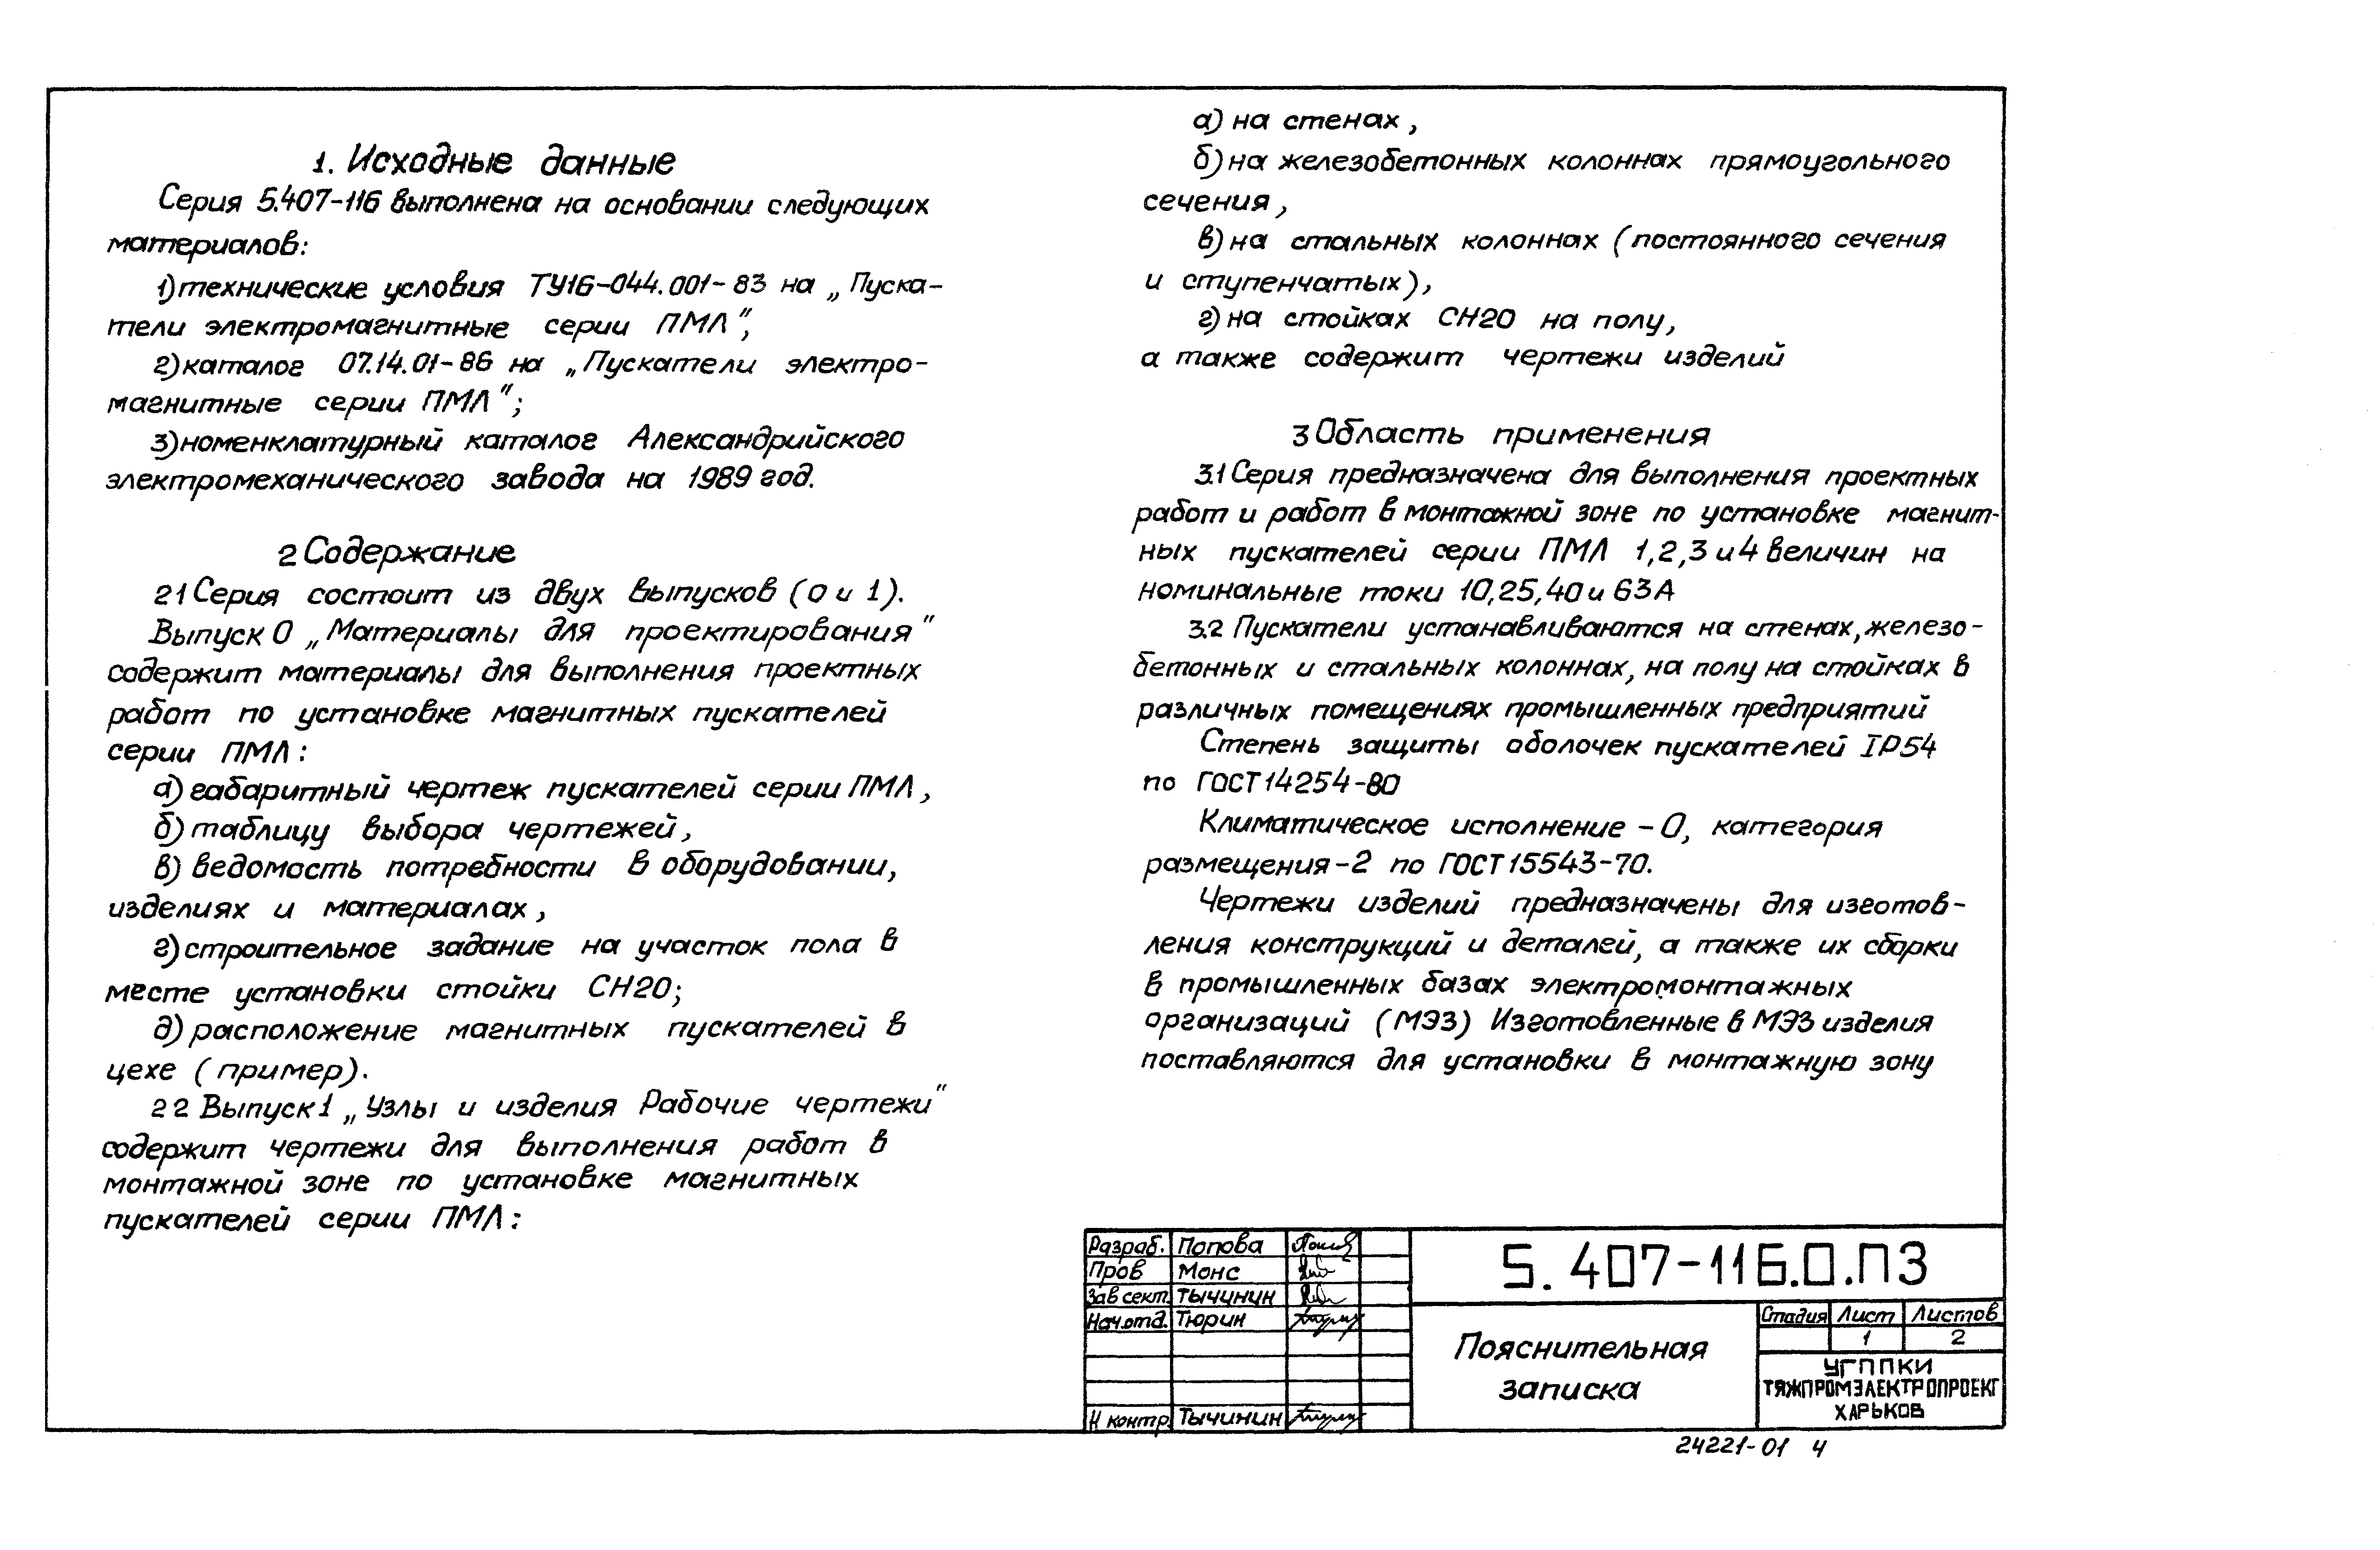 1. Исходные данные
Серия 5.407-116 выполнена на основании следующих
материалов:
1) технические условия ТУ16-044.001-83 на „Пуска-
тели электромагнитные серии ПМЛ",
2) каталог 07.14.01-86 на „Пускатели электро-
магнитные серии ПМЛ";
3) номенклатурный каталог Александрийского
электромеханического завода на 1989 год.
2 Содержание
2 1 Серия состоит из двух выпусков (0 и 1).
Выпуск 0 „Материалы для проектирования"
содержит материалы для выполнения проектных
работ по установке магнитных пускателей
серии ПМЛ:
а) габаритный чертеж пускателей серии ПМЛ,
б) таблицу выбора чертежей,
в) ведомость потребности в оборудовании,
изделиях и материалах,
г) строительное задание на участок пола в
месте установки стойки СН20;
д) расположение магнитных пускателей в
цехе (пример).
2 2 Выпуск 1 „Узлы и изделия Рабочие чертежи"
содержит чертежи для выполнения работ в
монтажной зоне по установке магнитных
пускателей серии ПМЛ:
а) на стенах,
б) на железобетонных колоннах прямоугольного
сечения,
в) на стальных колоннах (постоянного сечения
и ступенчатых),
г) на стойках СН20 на полу,
а также содержит чертежи изделий
3 Область применения
3.1 Серия предназначена для выполнения проектных
работ и работ в монтажной зоне по установке магнит-
ных пускателей серии ПМЛ 1,2,3 и 4 величин на
номинальные токи 10,25,40 и 63А
3.2 Пускатели устанавливаются на стенах, железо-
бетонных и стальных колоннах, на полу на стойках в
различных помещениях промышленных предприятий
Степень защиты оболочек пускателей IP54
по ГОСТ 14254-80
Климатическое исполнение - О, категория
размещения - 2 по ГОСТ 15543-70.
Чертежи изделий предназначены для изготов-
ления конструкций и деталей, а также их сборки
в промышленных базах электромонтажных
организаций (МЭЗ) Изготовленные в МЭЗ изделия
поставляются для установки в монтажную зону
Разраб. Попова
Пров Монс
Зав сект. Тычинин
Нач.отд. Тюрин
Н контр. Тычинин
5.407-116.0.ПЗ
Пояснительная
записка
Стадия Лист Листов
1 2
УГППКИ
ТЯЖПРОМЭЛЕКТРОПРОЕКТ
ХАРЬКОВ
24221-01 4